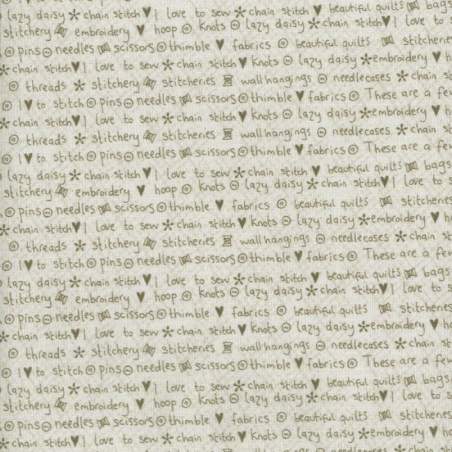 lazy daisy chain stitch ♥ I love to sew chain stitch ♥ beautiful quilts
stitchery embroidery ♥ hoop knots lazy daisy chain stitch ♥ I love to
pins needles scissors thimble ♥ fabrics beautiful quilts stitcheries
chain stitch ♥ I love to sew chain stitch ♥ knots lazy daisy embroidery ♥
threads stitchery stitcheries wallhangings needlecases chain
I ♥ to stitch pins needles scissors thimble ♥ fabrics These are a few
chain stitch ♥ I love to sew chain stitch ♥ knots lazy daisy embroidery ♥
threads stitchery stitcheries wallhangings needlecases chain
I ♥ to stitch pins needles scissors thimble ♥ fabrics These are a few
lazy daisy chain stitch ♥ I love to sew chain stitch ♥ beautiful quilts bags
stitchery embroidery ♥ hoop knots lazy daisy chain stitch ♥ I love to
pins needles scissors thimble ♥ fabrics beautiful quilts stitcheries
chain stitch ♥ I love to sew chain stitch ♥ knots lazy daisy embroidery ♥
threads stitchery stitcheries wallhangings needlecases chain
I ♥ to stitch pins needles scissors thimble ♥ fabrics These are a few
lazy daisy chain stitch ♥ I love to sew chain stitch ♥ beautiful quilts bags
stitchery embroidery ♥ hoop knots lazy daisy chain stitch ♥ I love to
pins needles scissors thimble ♥ fabrics beautiful quilts stitcheries
chain stitch ♥ I love to sew chain stitch ♥ knots lazy daisy embroidery ♥
threads stitchery stitcheries wallhangings needlecases chain
I ♥ to stitch pins needles scissors thimble ♥ fabrics These are a few
lazy daisy chain stitch ♥ I love to sew chain stitch ♥ beautiful quilts bags
stitchery embroidery ♥ hoop knots lazy daisy chain stitch ♥ I love to
pins needles scissors thimble ♥ fabrics beautiful quilts stitcheries
chain stitch ♥ I love to sew chain stitch ♥ knots lazy daisy embroidery ♥